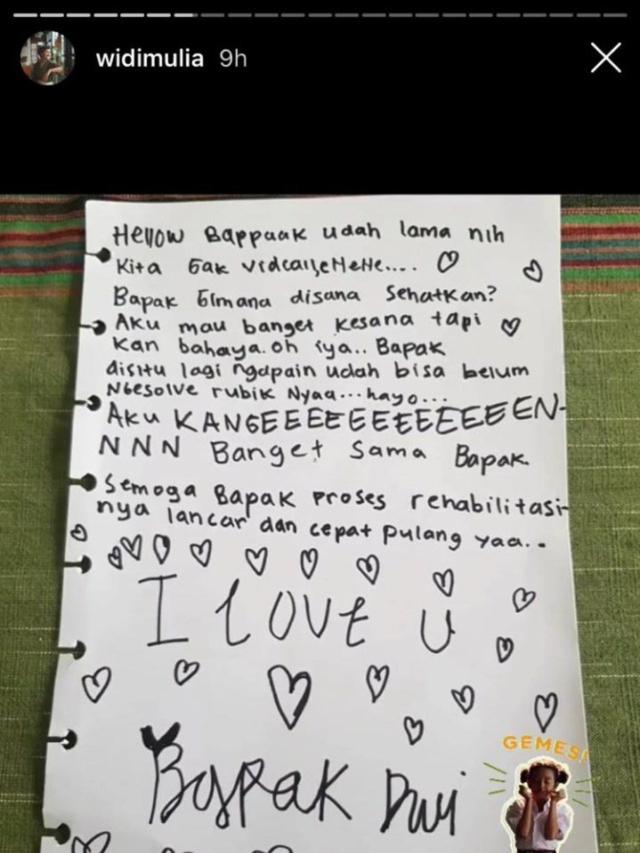 widimulia 9h
Hellow Bappaak udah lama nih
Kita Gak vrdcallseHeHe....
Bapak Gimana disana SehatKan?
Aku mau banget kesana tapi
Kan bahaya. oh iya.. Bapak
disitu lagi ngapain udah bisa belum
NGesolve rubik Nyaa...hayo...
Aku KANGEEEEEEEEEEEEEN-
NNN Banget Sama Bapak
Semoga Bapak Proses rehabilitasi-
nya lancar dan cepat pulang yaa..
I LOVE U
GEMES!
Bapak Dwi